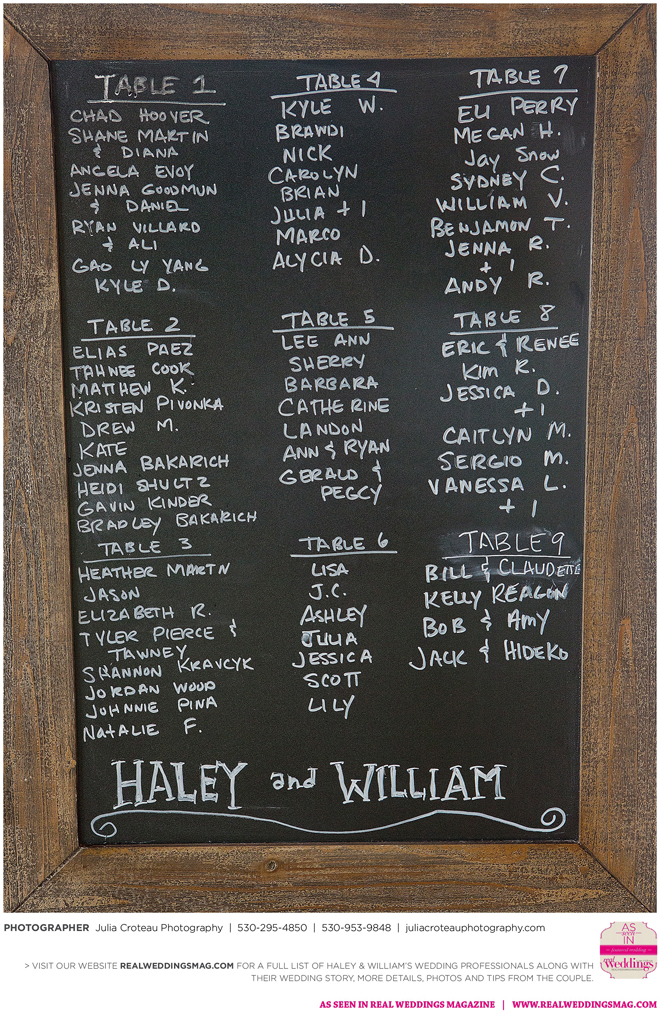 TABLE 1
CHAD HOOVER
SHANE MARTIN
& DIANA
ANGELA EVOY
JENNA GOODMUN
& DANIEL
RYAN VILLARD
& ALI
GAO LY YANG
KYLE D.
TABLE 2
ELIAS PAEZ
TAHNEE COOK
MATTHEW K.
KRISTEN PIVONKA
DREW M.
KATE
JENNA BAKARICH
HEIDI SHULTZ
GAVIN KINDER
BRADLEY BAKARICH
TABLE 3
HEATHER MARTN
JASON
ELIZABETH R.
TYLER PIERCE &
TAWNEY
SHANNON KRAVCYK
JORDAN WOOD
JOHNNIE PINA
NATALIE F.
TABLE 4
KYLE W.
BRANDI
NICK
CAROLYN
BRIAN
JULIA + 1
MARCO
ALYCIA D.
TABLE 5
LEE ANN
SHERRY
BARBARA
CATHERINE
LANDON
ANN & RYAN
GERALD &
PEGGY
TABLE 6
LISA
J.C.
ASHLEY
JULIA
JESSICA
SCOTT
LILY
TABLE 7
ELI PERRY
MEGAN H.
Jay Snow
SYDNEY C.
WILLIAM V.
BENJAMON T.
JENNA R.
+ 1
ANDY R.
TABLE 8
ERIC & RENEE
KIM R.
JESSICA D.
+ 1
CAITLYN M.
SERGIO M.
VANESSA L.
+ 1
TABLE 9
BILL & CLAUDETTE
KELLY REAGAN
BOB & AMY
JACK & HIDEKO
HALEY and WILLIAM
PHOTOGRAPHER Julia Croteau Photography | 530-295-4850 | 530-953-9848 | juliacroteauphotography.com
> VISIT OUR WEBSITE REALWEDDINGSMAG.COM FOR A FULL LIST OF HALEY & WILLIAM'S WEDDING PROFESSIONALS ALONG WITH
THEIR WEDDING STORY, MORE DETAILS, PHOTOS AND TIPS FROM THE COUPLE.
AS
SEEN
IN
real
Weddings
AS SEEN IN REAL WEDDINGS MAGAZINE | WWW.REALWEDDINGSMAG.COM